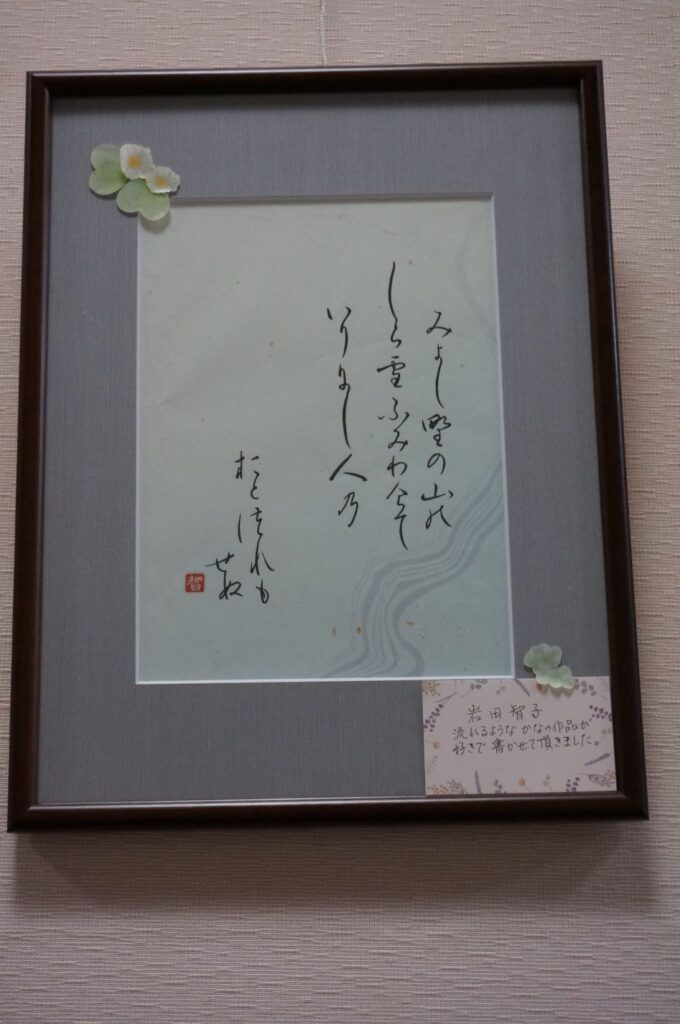 みよし野の山の
しら雪ふみわけて
いりにし人の
おとつれも
せぬ
智
岩田智子
流れるような かなの作品が
好きで 書かせて頂きました。